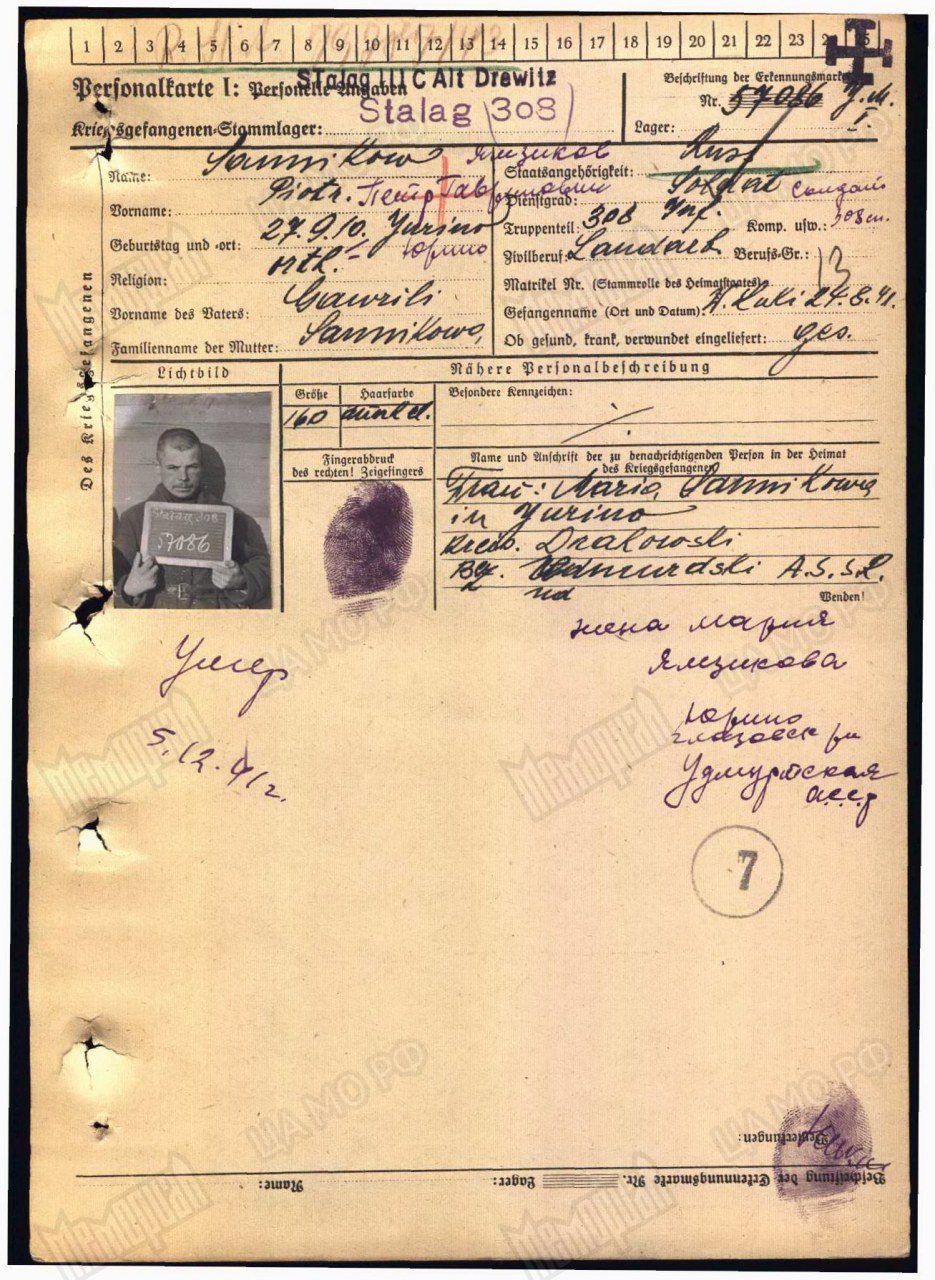 1 2 3 4 5 6 7 8 9 10 11 12 13 14 15 16 17 18 19 20 21 22 23 24 25
Personalkarte I: Personelle Angaben
Stalag III C Alt Drewitz
Stalag 308
Kriegsgefangenen-Stammlager:
Beschriftung der Erkennungsmarke
Nr. 57086
Lager:
Des Kriegsgefangenen
Name: Sannikow Ямщиков
Vorname: Piotr. Петр Гаврилович
Geburtstag und -ort: 27.9.10. Yurino Юрино
Religion: orth.
Vorname des Vaters: Gawrili
Familienname der Mutter: Sannikowa
Staatsangehörigkeit: Russ
Dienstgrad: Soldat солдат
Truppenteil: 308 Inf. Komp. usw.: 308
Zivilberuf: Landarb Berufs-Gr.: 13
Matrikel Nr. (Stammrolle des Heimatstaates):
Gefangennahme (Ort und Datum): 24.8.41.
Ob gesund, krank, verwundet eingeliefert: ges.
Lichtbild
Nähere Personalbeschreibung
Größe Haarfarbe Besondere Kennzeichen:
160 dunkel.
Fingerabdruck
des rechten! Zeigefingers
Stalag 308
57086
Name und Anschrift der zu benachrichtigenden Person in der Heimat
des Kriegsgefangenen
Frau: Maria Sannikowa
in Yurino
Kreis. Dralowski
Udmurdski A.S.S.R.
Wenden!
Умер
5.12.41г.
жена Мария
Ямщикова
Юрино
глазовск рн
Удмуртская
асср
7
Bemerkungen:
Beschriftung der Erkennungsmarke Nr. Lager: Name:
Мемориал
ЦАМО РФ